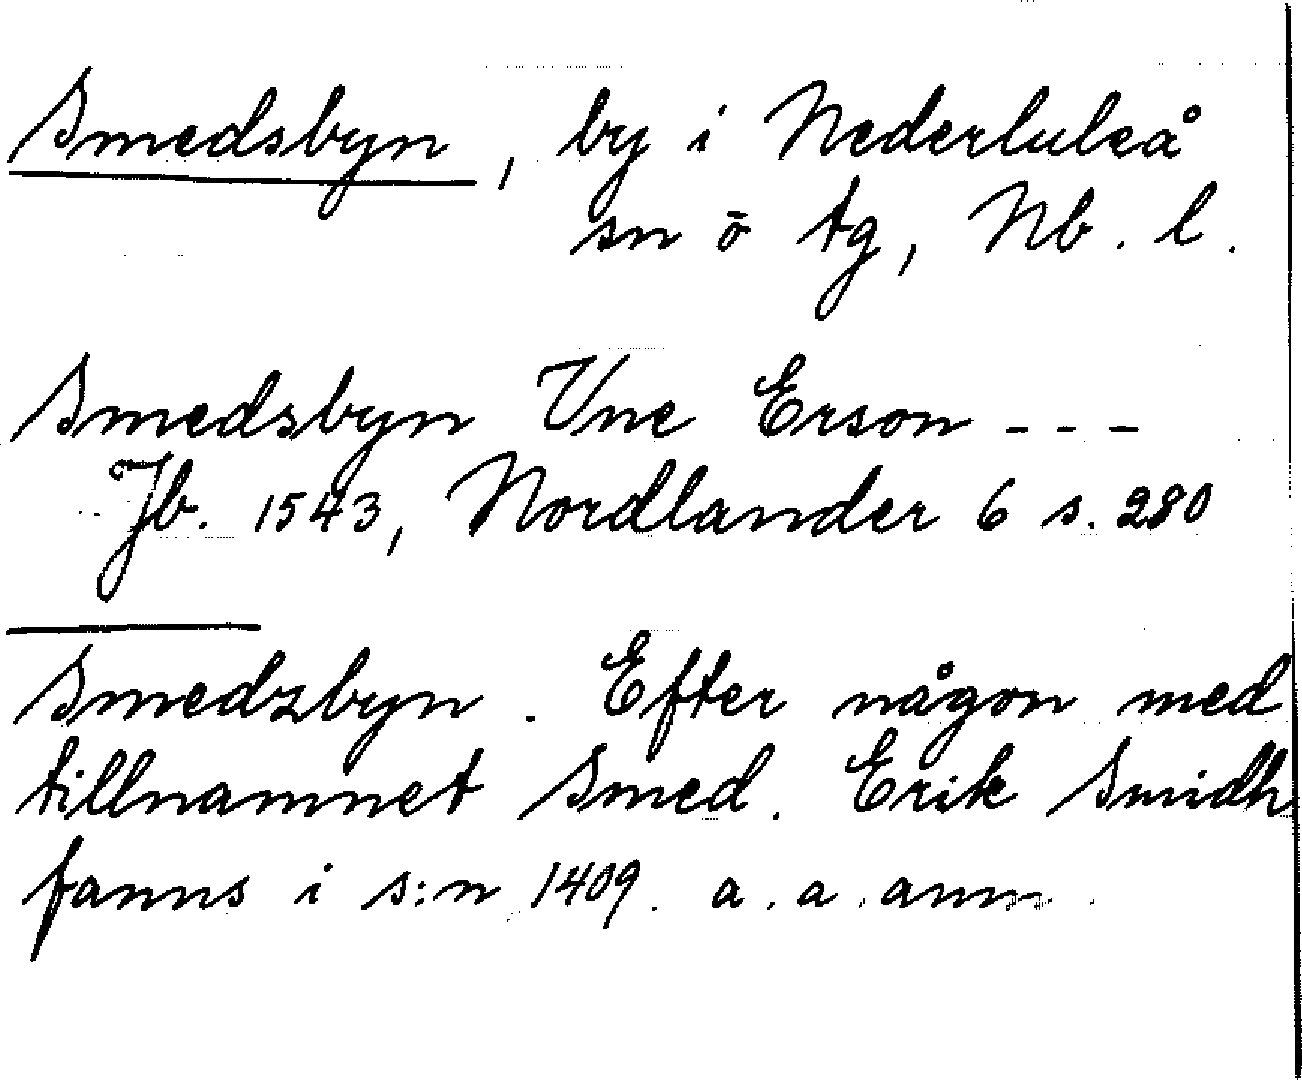 Smedsbyn, by i Nederluleå
sn o tg, Nb. l.
Smedsbyn Vne Erson ---
Jb. 1543, Nordlander 6 s. 280
Smedzbyn. Efter någon med
tillnamnet Smed. Erik Smidh
fanns i s:n 1409. a. a. anm.